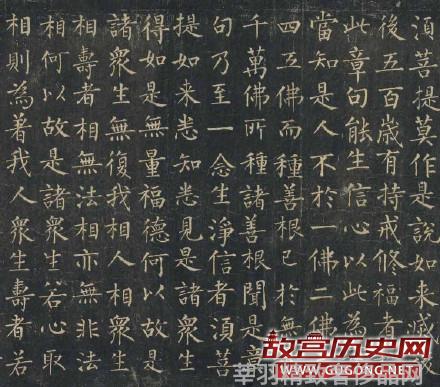 湏菩提莫作是說如来滅
後五百歳有持戒修福者
此章句能生信心以此為
當知是人不於一佛二佛
四五佛而種善根已於無
千萬佛所種諸善根聞是章
句乃至一念生淨信者湏菩
提如来悉知悉見是諸衆生
得如是無量福德何以故是
諸衆生無復我相人相衆生
相壽者相無法相亦無非法
相何以故是諸衆生若心取
相則為着我人衆生壽者若
故宫历史网